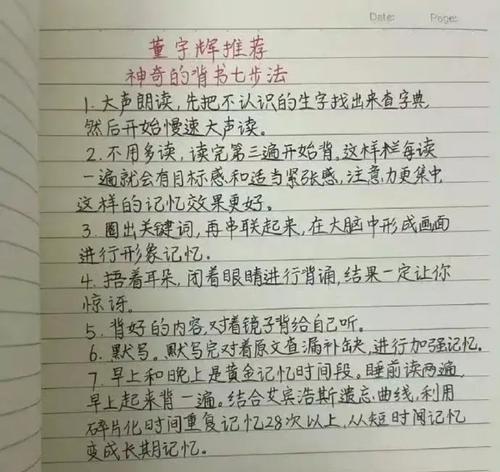 Date:  Page:
董宇辉推荐
神奇的背书七步法
1. 大声朗读,先把不认识的生字找出来查字典,
然后开始慢速大声读。
2. 不用多读,读完第三遍开始背。这样样每读
一遍就会有目标感和适当紧张感,注意力更集中,
这样的记忆效果更好。
3. 圈出关键词,再串联起来,在大脑中形成画面
进行形象记忆。
4. 捂着耳朵,闭着眼睛进行背诵,结果一定让你
惊讶。
5. 背好的内容,对着镜子背给自己听。
6. 默写。默写完对着原文查漏补缺,进行加强记忆。
7. 早上和晚上是黄金记忆时间段。睡前读两遍,
早上起来背一遍。结合艾宾浩斯遗忘曲线,利用
碎片化时间重复记忆28次以上,从短时间记忆
变成长期记忆。